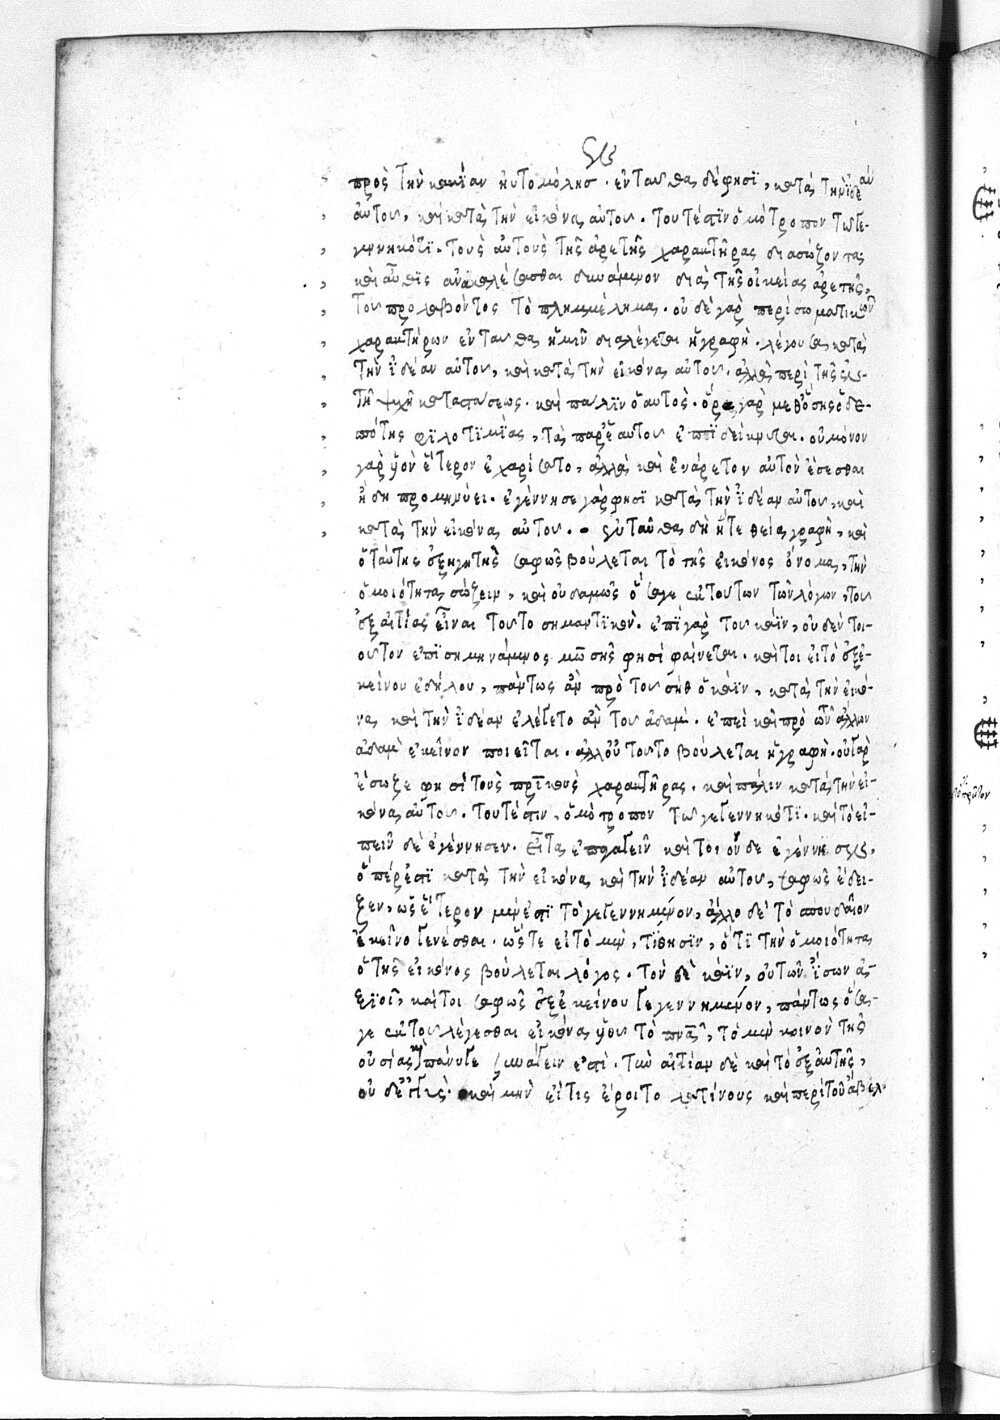 πρὸς τὴν κακίαν ηὐτομόλησ. ἐνταῦθα δέ φησϊ, κατὰ τὴν ἰδέαν
αὐτοῦ, καὶ κατὰ τὴν εἰκόνα αὐτοῦ. τουτέστιν ὁμότροπον τῶ γε-
γεννηκότι. τοὺς αὐτοὺς τῆς ἀρετῆς χαρακτῆρας διασώζοντας
καὶ αὖθις ἀνακαλέσασθαι δυνάμενον διὰ τῆς οἰκείας ἀρετῆς,
τοῦ προλαβόντος τὸ πλημμέλημα. οὐδὲ γὰρ περὶ σωματικῶν
χαρακτήρων ἐνταῦθα ἡμῖν διαλέγεται ἡ γραφὴ. λέγουσα κατὰ
τὴν ἰδέαν αὐτοῦ, καὶ κατὰ τὴν εἰκόνα αὐτοῦ. ἀλλὰ περὶ τῆς ἐν
τῆ ψυχῆ καταστάσεως. καὶ παλϊν ὁ αὐτὸς. ὅρα γὰρ μεθ' ὅσης ὁ δε-
πότης φϊλοτιμίας, τὰ παρ' ἑαυτοῦ ἐπϊδείκνυται. οὐ μόνον
γὰρ υἱὸν ἕτερον ἐχαρίσατο, ἀλλὰ καὶ ἐνάρετον αὐτὸν ἔσεσθαι
ἤδη προμηνύει. ἐγέννησε γάρ φησϊ κατὰ τὴν ἰδέαν αὐτοῦ, καὶ
κατὰ τὴν εἰκόνα αὐτοῦ. ἐνταῦθα δὴ ἥ τε θεία γραφὴ, καὶ
ὁ ταύτης ἐξηγητὴς σαφῶς βούλεται τὸ τῆς εἰκόνος ὄνομα, τὴν
ὁμοιότητα σώζειν, καὶ οὐδαμῶς ὅσα γε ἐκ τούτων τῶν λόγων, τοῦ
ἐξ αἰτίας εἶναι τοῦτο σημαντικὸν. ἐπὶ γὰρ τοῦ κάϊν, οὐδὲν τοι-
οῦτον ἐπισημηνάμενος μωσῆς φησὶ φαίνεται. καίτοι εἰ τὸ ἐξ ἐ-
κείνου ἐδήλου, πάντως ἂν πρὸ τοῦ σὴθ ὁ κάϊν, κατὰ τὴν εἰκό-
να καὶ τὴν ἰδέαν ἐλέγετο ἂν τοῦ ἀδαμ. ἐπεὶ καὶ πρὸ τῶν ἄλλων
ἀδαμ ἐκεῖνον ποιεῖται. ἀλλ' οὐ τοῦτο βούλεται ἡ γραφὴ. οὐ γὰρ
ἔσωζε φησὶ τοὺς πρϊκοὺς χαρακτῆρας. καὶ πάλιν κατὰ τὴν εἰ-
κόνα αὐτοῦ. τουτέστιν, ὁμότροπον τῶ γεγεννηκότι. καὶ τὸ εἰ-
πεῖν δὲ ἐγέννησεν. εἶτα ἐπαγαγεῖν καίτοι
ὅπέρ ἐστϊ κατὰ τὴν εἰκόνα καὶ τὴν ἰδέαν αὐτοῦ, σαφῶς ἔδει-
ξεν, ὡς ἕτερον μέν ἐστϊ τὸ γεγεννημένον, ἄλλο δὲ τὸ σπουδαῖον
ἐκεῖνο γενέσθαι. ὥστε εἰ τὸ μὲν, τίθησϊν, ὅτϊ τὴν ὁμοιότητα
ὁ τῆς εἰκόνος βούλεται λόγος. τὸν δὲ κάϊν, οὐ τῶν ἴσων ἀ-
ξϊοῖ, καίτοι σαφῶς ἐξ ἐκείνου γεγεννημένον, πάντως ὅσα
γε ἐκ τοῦ λέγεσθαι εἰκόνα υἱοῦ τὸ πνᾶ, τὸ μὲν κοινὸν τῆς
οὐσίας πάνυ γε συνάγειν ἐστὶ. τὴν αἰτίαν δὲ καὶ τὸ ἐξ αὐτῆς,
οὐδέ γε. καὶ μὴν εἴ τις ἔροιτο λατίνους καὶ περὶ τοῦ ἄβελ.